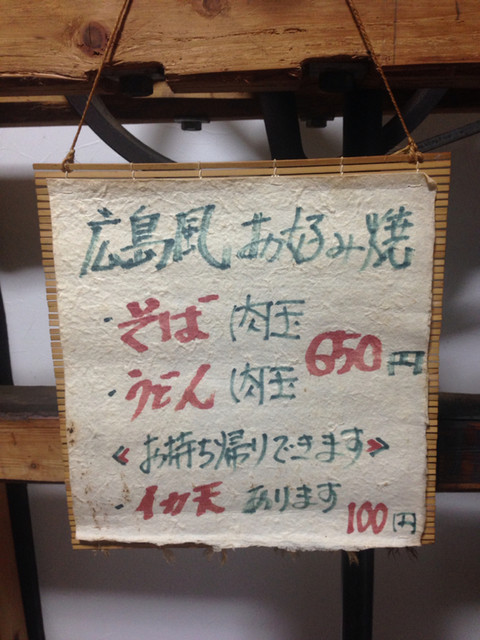 広島風お好み焼
・そば 肉玉
650円
・うどん 肉玉
《お持ち帰りできます》
・イカ天 あります 100円